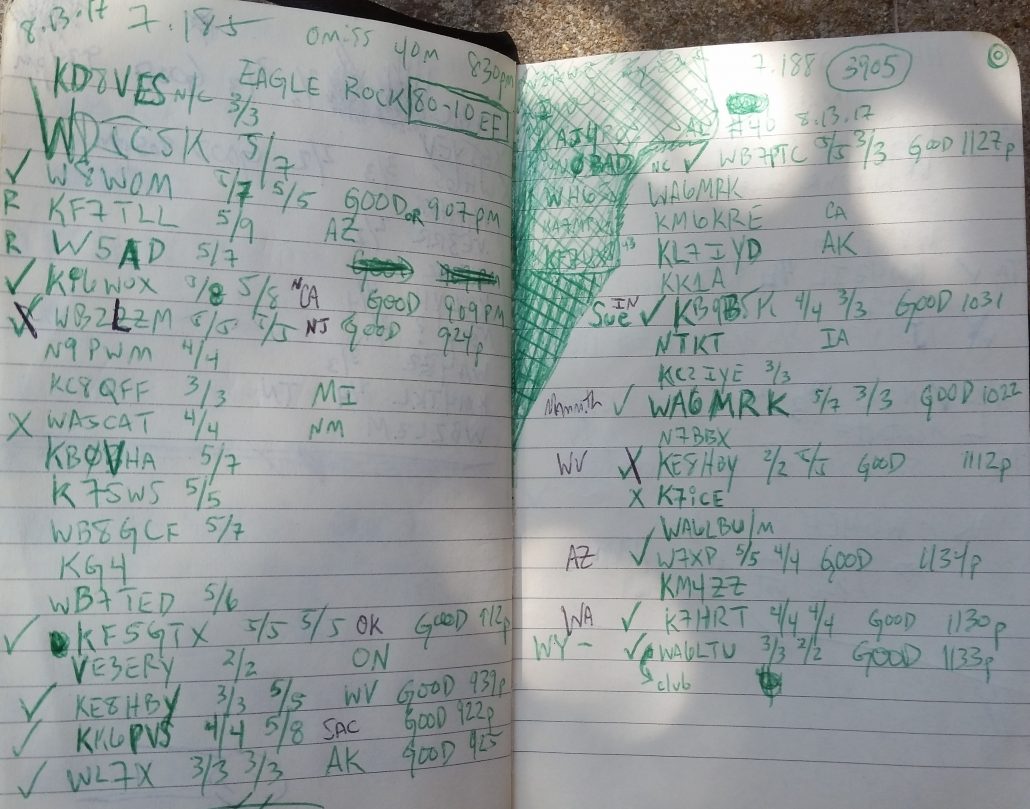 8.13.17 7.185 OMISS 40M 830pm
KD8VES N/C 3/3 EAGLE ROCK 80-10 EF
5/7
✓ W8WOM 5/7 5/5 GOOD OR 907PM
R KF7TLL 5/9 AZ
R W5AD 5/7
✓ 5/8 NCA GOOD 909PM
WB2LZM 5/5 5/5 NJ GOOD 924p
N9PWM 4/4
KC8QFF 3/3 MI
X WA5CAT 4/4 NM
KBØVHA 5/7
K7SWS 5/5
WB8GCF 5/7
KG4
WB7TED 5/6
✓ KF5GTX 5/5 5/5 OK GOOD 912p
VE3ERY 2/2 ON
✓ KE8HBY 3/3 5/5 WV GOOD 939p
✓ KK6PVS 4/4 5/8 SAC GOOD 922p
✓ WL7X 3/3 3/3 AK GOOD 925
7.188 3905
#40 8.13.17
WØBAD NC ✓ WB7PTC 5/5 3/3 GOOD 1127p
WA6MRK
KM6KRE CA
KL7IYD AK
KK1A
Sue IN ✓ 4/4 3/3 GOOD 1031
NTKT IA
KC2IYE 3/3
Mammoth ✓ WA6MRK 5/7 3/3 GOOD 1022
N7BBX
WV X KE8HBY 2/2 5/5 GOOD 1112p
X K7iCE
WA6LBU/M
AZ ✓ W7XP 5/5 4/4 GOOD 1134p
KM4ZZ
WA ✓ K7HRT 4/4 4/4 GOOD 1130p
WY - ✓ WA6LTU 3/3 2/2 GOOD 1133p
club